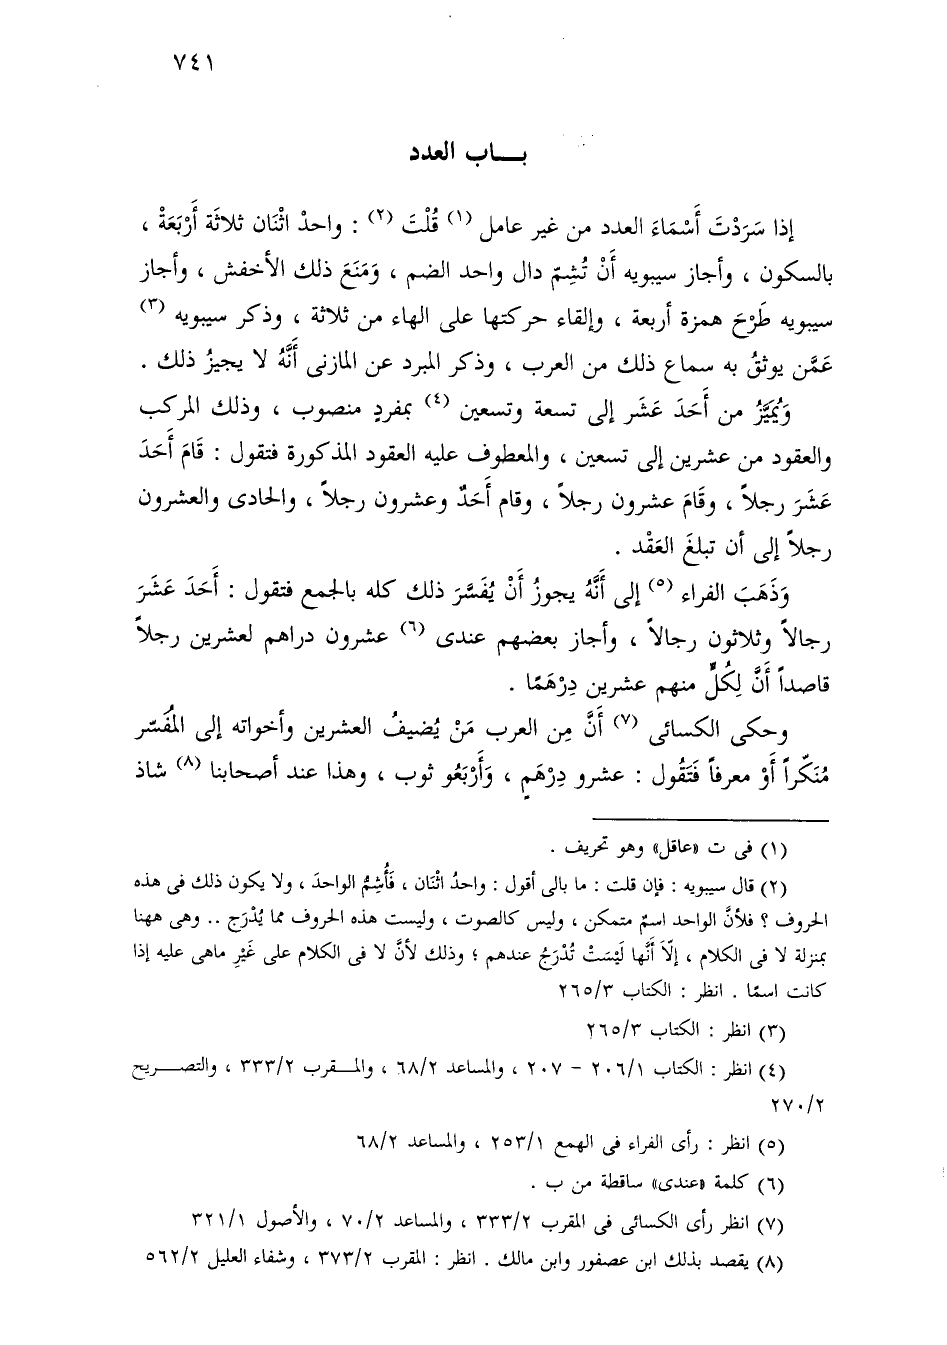 ٧٤١
بـــاب العدد
إذا سَرَدْتَ أَسْمَاءَ العدد من غير عامل (١) قُلْتَ (٢) : واحدْ اثْنَان ثلاثَة أَرْبَعَةْ ،
بالسكون ، وأجاز سيبويه أَنْ تُشِمّ دال واحد الضم ، وَمَنَعَ ذلك الأخفش ، وأجاز
سيبويه طَرْحَ همزة أربعة ، وإلقاء حركتها على الهاء من ثلاثة ، وذكر سيبويه (٣)
عَمَّن يوثقُ به سماع ذلك من العرب ، وذكر المبرد عن المازنى أَنَّهُ لا يجيزُ ذلك .
وَيُمَيَّزُ من أَحَدَ عَشَر إلى تسعة وتسعين (٤) بمفردٍ منصوب ، وذلك المركب
والعقود من عشرين إلى تسعين ، والمعطوف عليه العقود المذكورة فتقول : قَامَ أَحَدَ
عَشَرَ رجلاً ، وقَامَ عشرون رجلاً ، وقام أَحَدٌ وعشرون رجلاً ، والحادى والعشرون
رجلاً إلى أن تبلغَ العَقْد .
وَذَهَبَ الفراء (٥) إلى أَنَّهُ يجوزُ أَنْ يُفَسَّرَ ذلك كله بالجمع فتقول : أَحَدَ عَشَرَ
رجالاً وثلاثون رجالاً ، وأجاز بعضهم عندى (٦) عشرون دراهم لعشرين رجلاً
قاصداً أَنَّ لِكُلٍّ منهم عشرين دِرْهَمًا .
وحكى الكسائى (٧) أَنَّ مِن العرب مَنْ يُضيفُ العشرين وأخواته إلى المُفَسّر
مُنَكّراً أَوْ معرفاً فَتَقُول : عشرو دِرْهَمٍ ، وَأَرْبَعُو ثوب ، وهذا عند أصحابنا (٨) شاذ
(١) فى ت «عاقل» وهو تحريف .
(٢) قال سيبويه : فإن قلت : ما بالى أقول : واحدُ اثْنَان ، فَأُشِمُّ الواحدَ ، ولا يكون ذلك فى هذه
الحروف ؟ فلأنَّ الواحد اسمٌ متمكن ، وليس كالصوت ، وليست هذه الحروف مما يُدْرَج .. وهى ههنا
بمنزلة لا فى الكلام ، إلاّ أنَّها لَيْسَتْ تُدْرَجُ عندهم ؛ وذلك لأنَّ لا فى الكلام على غَيْرِ ماهى عليه إذا
كانت اسمًا . انظر : الكتاب ٢٦٥/٣
(٣) انظر : الكتاب ٢٦٥/٣
(٤) انظر : الكتاب ٢٠٦/١ – ٢٠٧ ، والمساعد ٦٨/٢ ، والمـقرب ٣٣٣/٢ ، والتصـــريح
٢٧٠/٢
(٥) انظر : رأى الفراء فى الهمع ٢٥٣/١ ، والمساعد ٦٨/٢
(٦) كلمة «عندى» ساقطة من ب .
(٧) انظر رأى الكسائى فى المقرب ٣٣٣/٢ ، والمساعد ٧٠/٢ ، والأصول ٣٢١/١
(٨) يقصد بذلك ابن عصفور وابن مالك . انظر : المقرب ٣٧٣/٢ ، وشفاء العليل ٥٦٢/٢